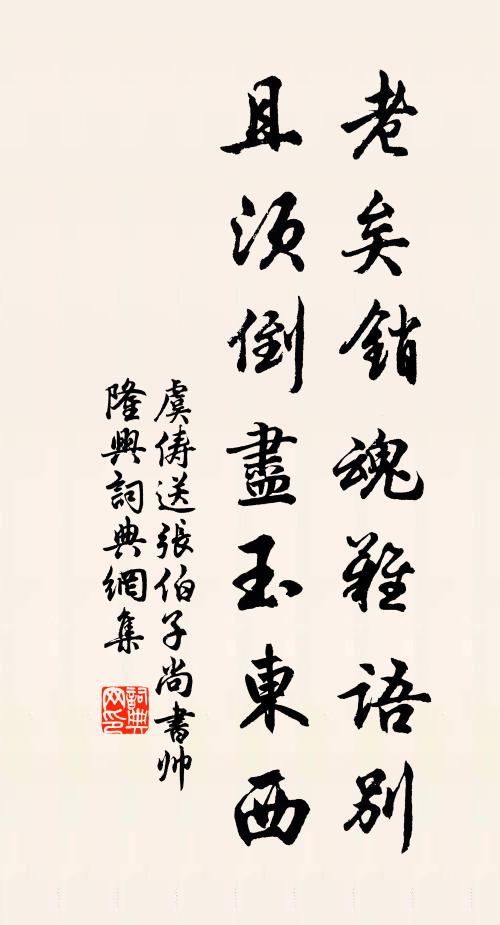 老矣銷魂難語別
且須倒盡玉東西
虞儔送張伯子尚書帅
隆興詞典網集
詞典网印